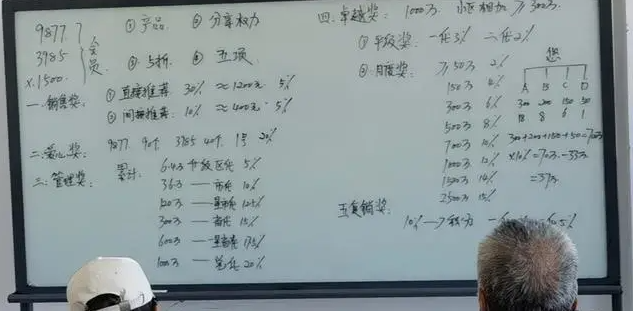 9877 ① 产品 ② 分享权力
3985 会员
x.1500. ③ 5折 ④ 五项
一.销售奖: ① 直接推荐 30% ≈1200元 5%
② 间接推荐 10% ≈400元 5%
9877 90个 3985 40个 1号 20%
二.爱心奖:
三.管理奖: 累计: 6.4万 5%
36万 —— 市代 10%
120万 —— 12.5%
300万 —— 省代 15%
600万 —— 17.5%
1000万 —— 20%
四.卓越奖: 1000万 小区相加 ≥300万
① 平级奖: 一代3% 二代2%
② 月度奖: ≥50万 2%
150万 4%
300万 6%
500万 8%
700万 10%
1000万 12%
1500万 14%
2500万 15%
您
A B C D
300 200 150 50
18 8 6 1
300+200+150+50=700万
x10%=70万-33万
=37万
五.复销奖:
10% → 积分